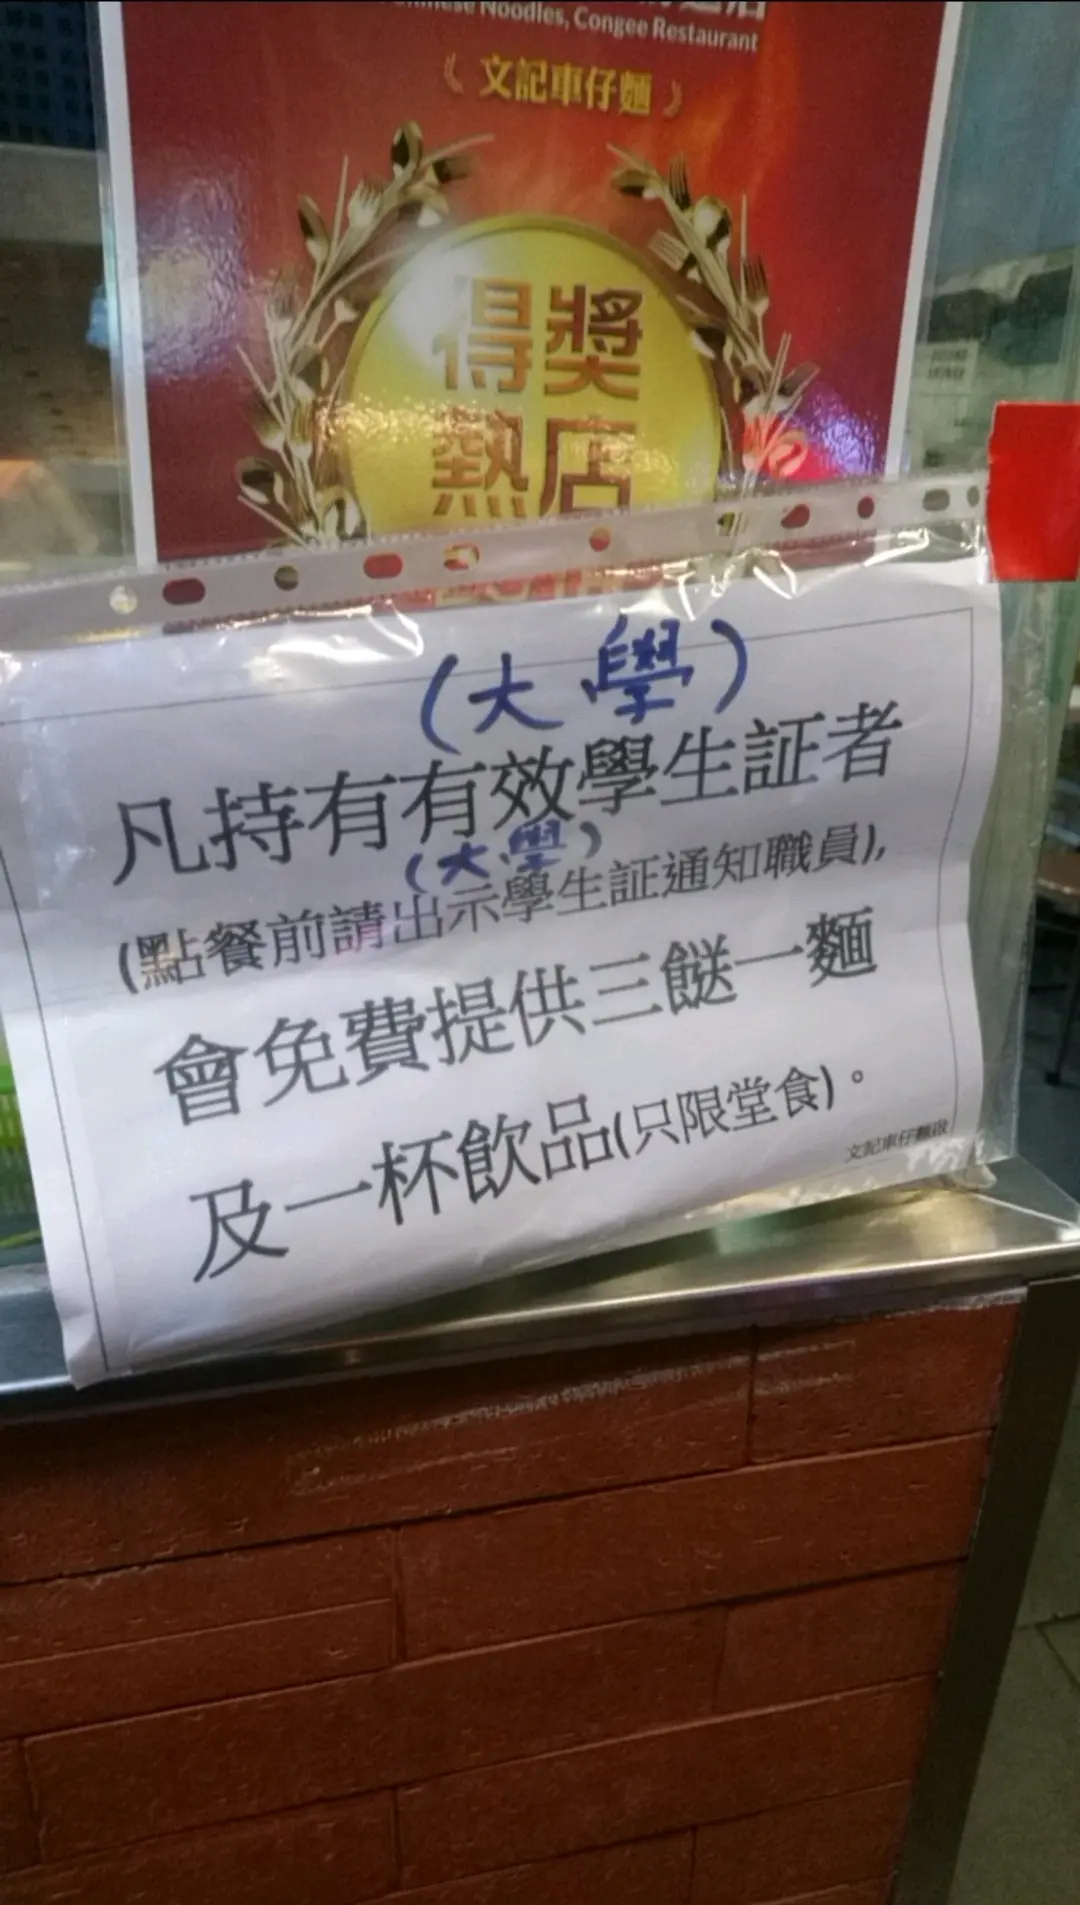 Chinese Noodles, Congee Restaurant
《 文記車仔麵 》
得獎
熱店
(大學)
凡持有有效學生証者
(大學)
(點餐前請出示學生証通知職員),
會免費提供三餸一麵
及一杯飲品(只限堂食)。
文記車仔麵啟